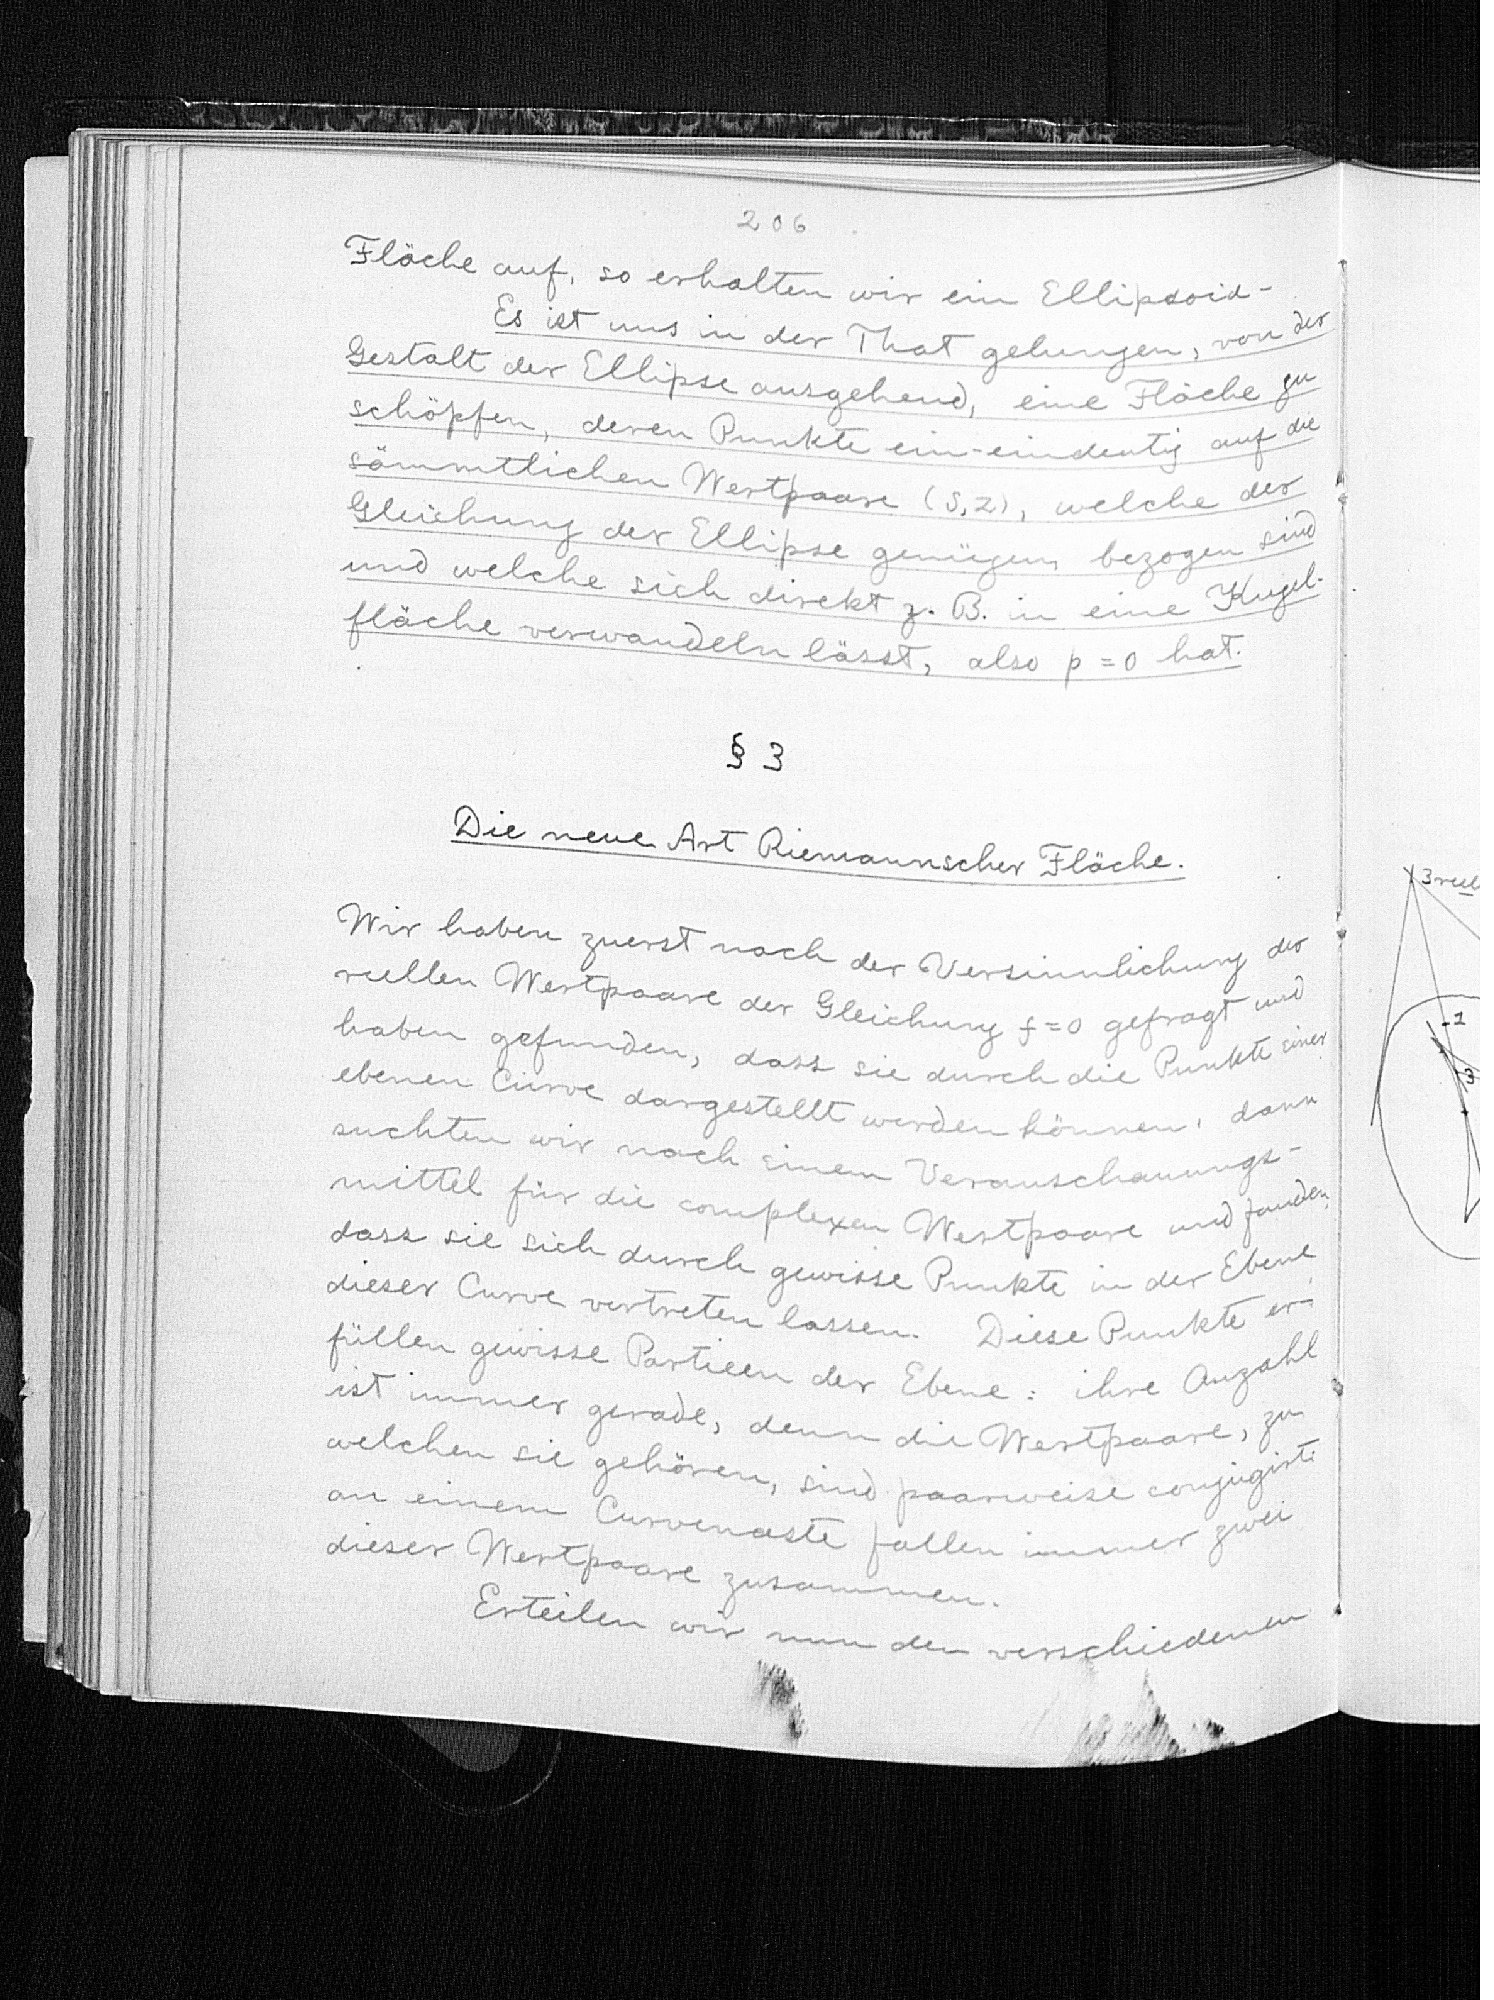 206
Fläche auf, so erhalten wir ein Ellipsoid-
Es ist uns in der That gelungen, von der
Gestalt der Ellipse ausgehend, eine Fläche zu
schöpfen, deren Punkte ein-eindeutig auf die
sämmtlichen Wertpaare (s, z), welche der
Gleichung der Ellipse genügen, bezogen sind
und welche sich direkt z. B. in eine Kugel-
fläche verwandeln lässt, also p = 0 hat.
§ 3
Die neue Art Riemannscher Fläche.
Wir haben zuerst nach der Versinnlichung der
reellen Wertpaare der Gleichung f = 0 gefragt und
haben gefunden, dass sie durch die Punkte einer
ebenen Curve dargestellt werden können, dann
suchten wir nach einem Veranschauungs-
mittel für die complexen Wertpaare und fanden,
dass sie sich durch gewisse Punkte in der Ebene
dieser Curve vertreten lassen. Diese Punkte er-
füllen gewisse Partieen der Ebene: ihre Anzahl
ist immer gerade, denn die Wertpaare, zu
welchen sie gehören, sind paarweise conjugirt;
an einem Curvenaste fallen immer zwei
dieser Wertpaare zusammen.
Erteilen wir nun den verschiedenen
3 reel
1
3